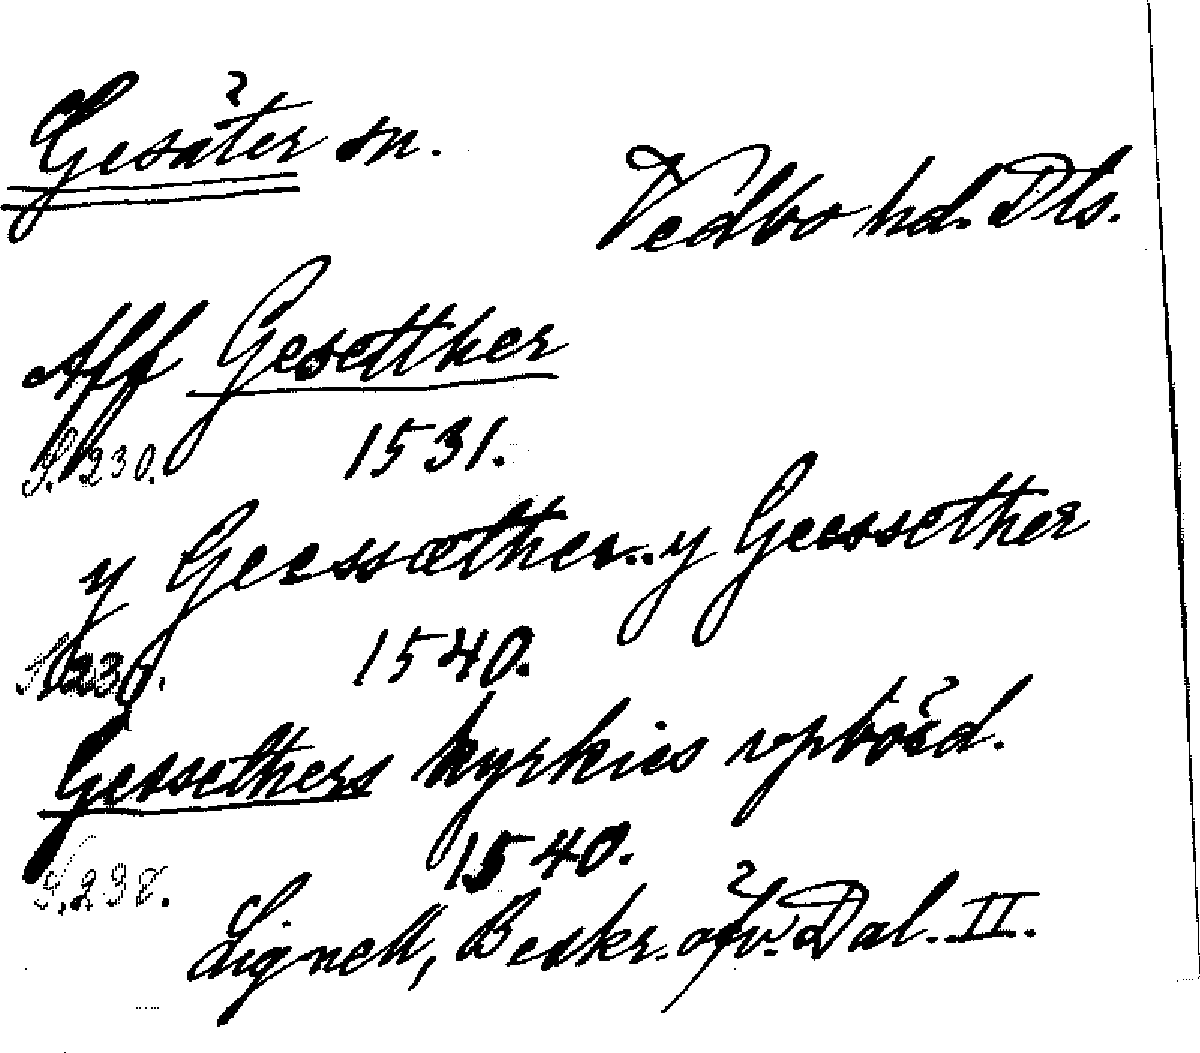 Gesäter sn.
Vedbo hd. Dls.
Aff Gesetther
S. 230. 1531.
y Geessæther.. y Geessether
S. 236. 1540.
Gessethers kyrkies vpbörd.
1540.
S. 238.
Lignell, Beskr. öfv. Dal. II.